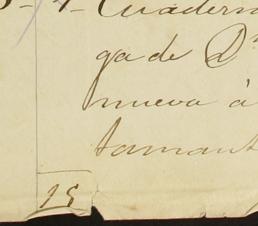 Cuadern
ga de Dn
nueva á
tamant
15